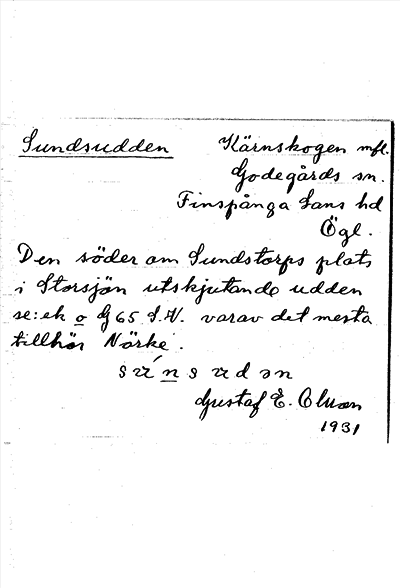 Sundsudden Kärnskogen mfl.
Godegårds sn.
Finspånga Läns hd
Ögl.
Den söder om Sundstorps plats
i Storsjön utskjutande udden
se: ek o G 65 S.V. varav det mesta
tillhör Närke.
Gustaf E. Olsson
1931